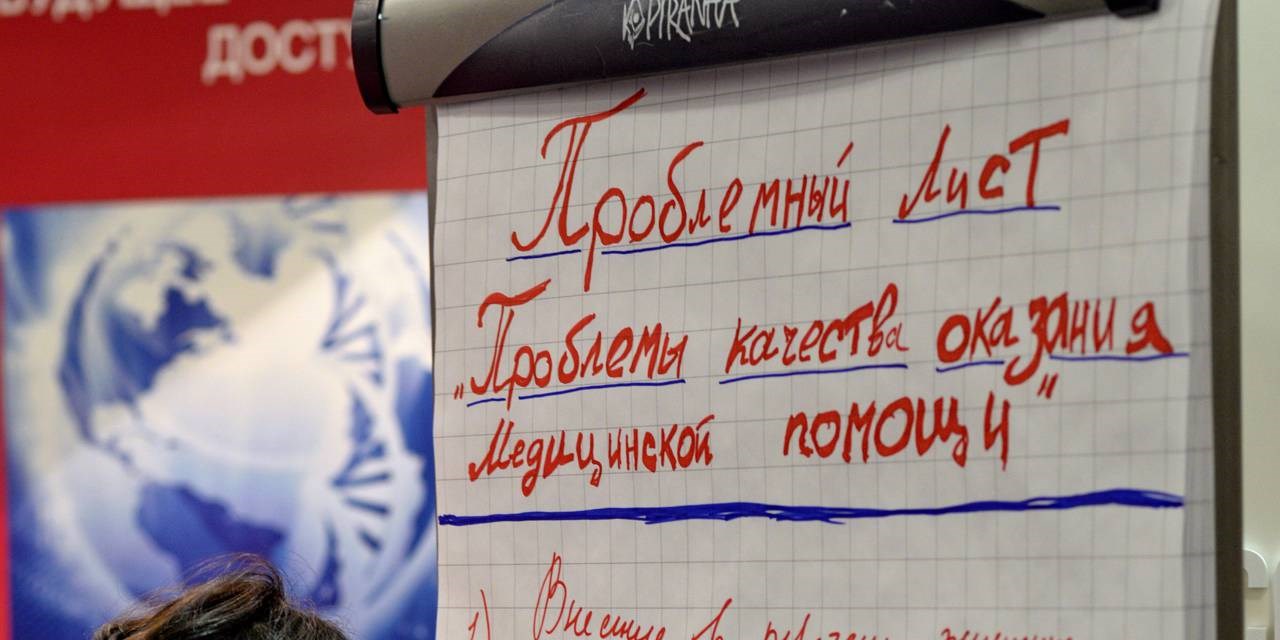 ДОСТУ
PIRANHA
Проблемный Лист
„Проблемы качества оказания
Медицинской помощи"
1) Внесение в